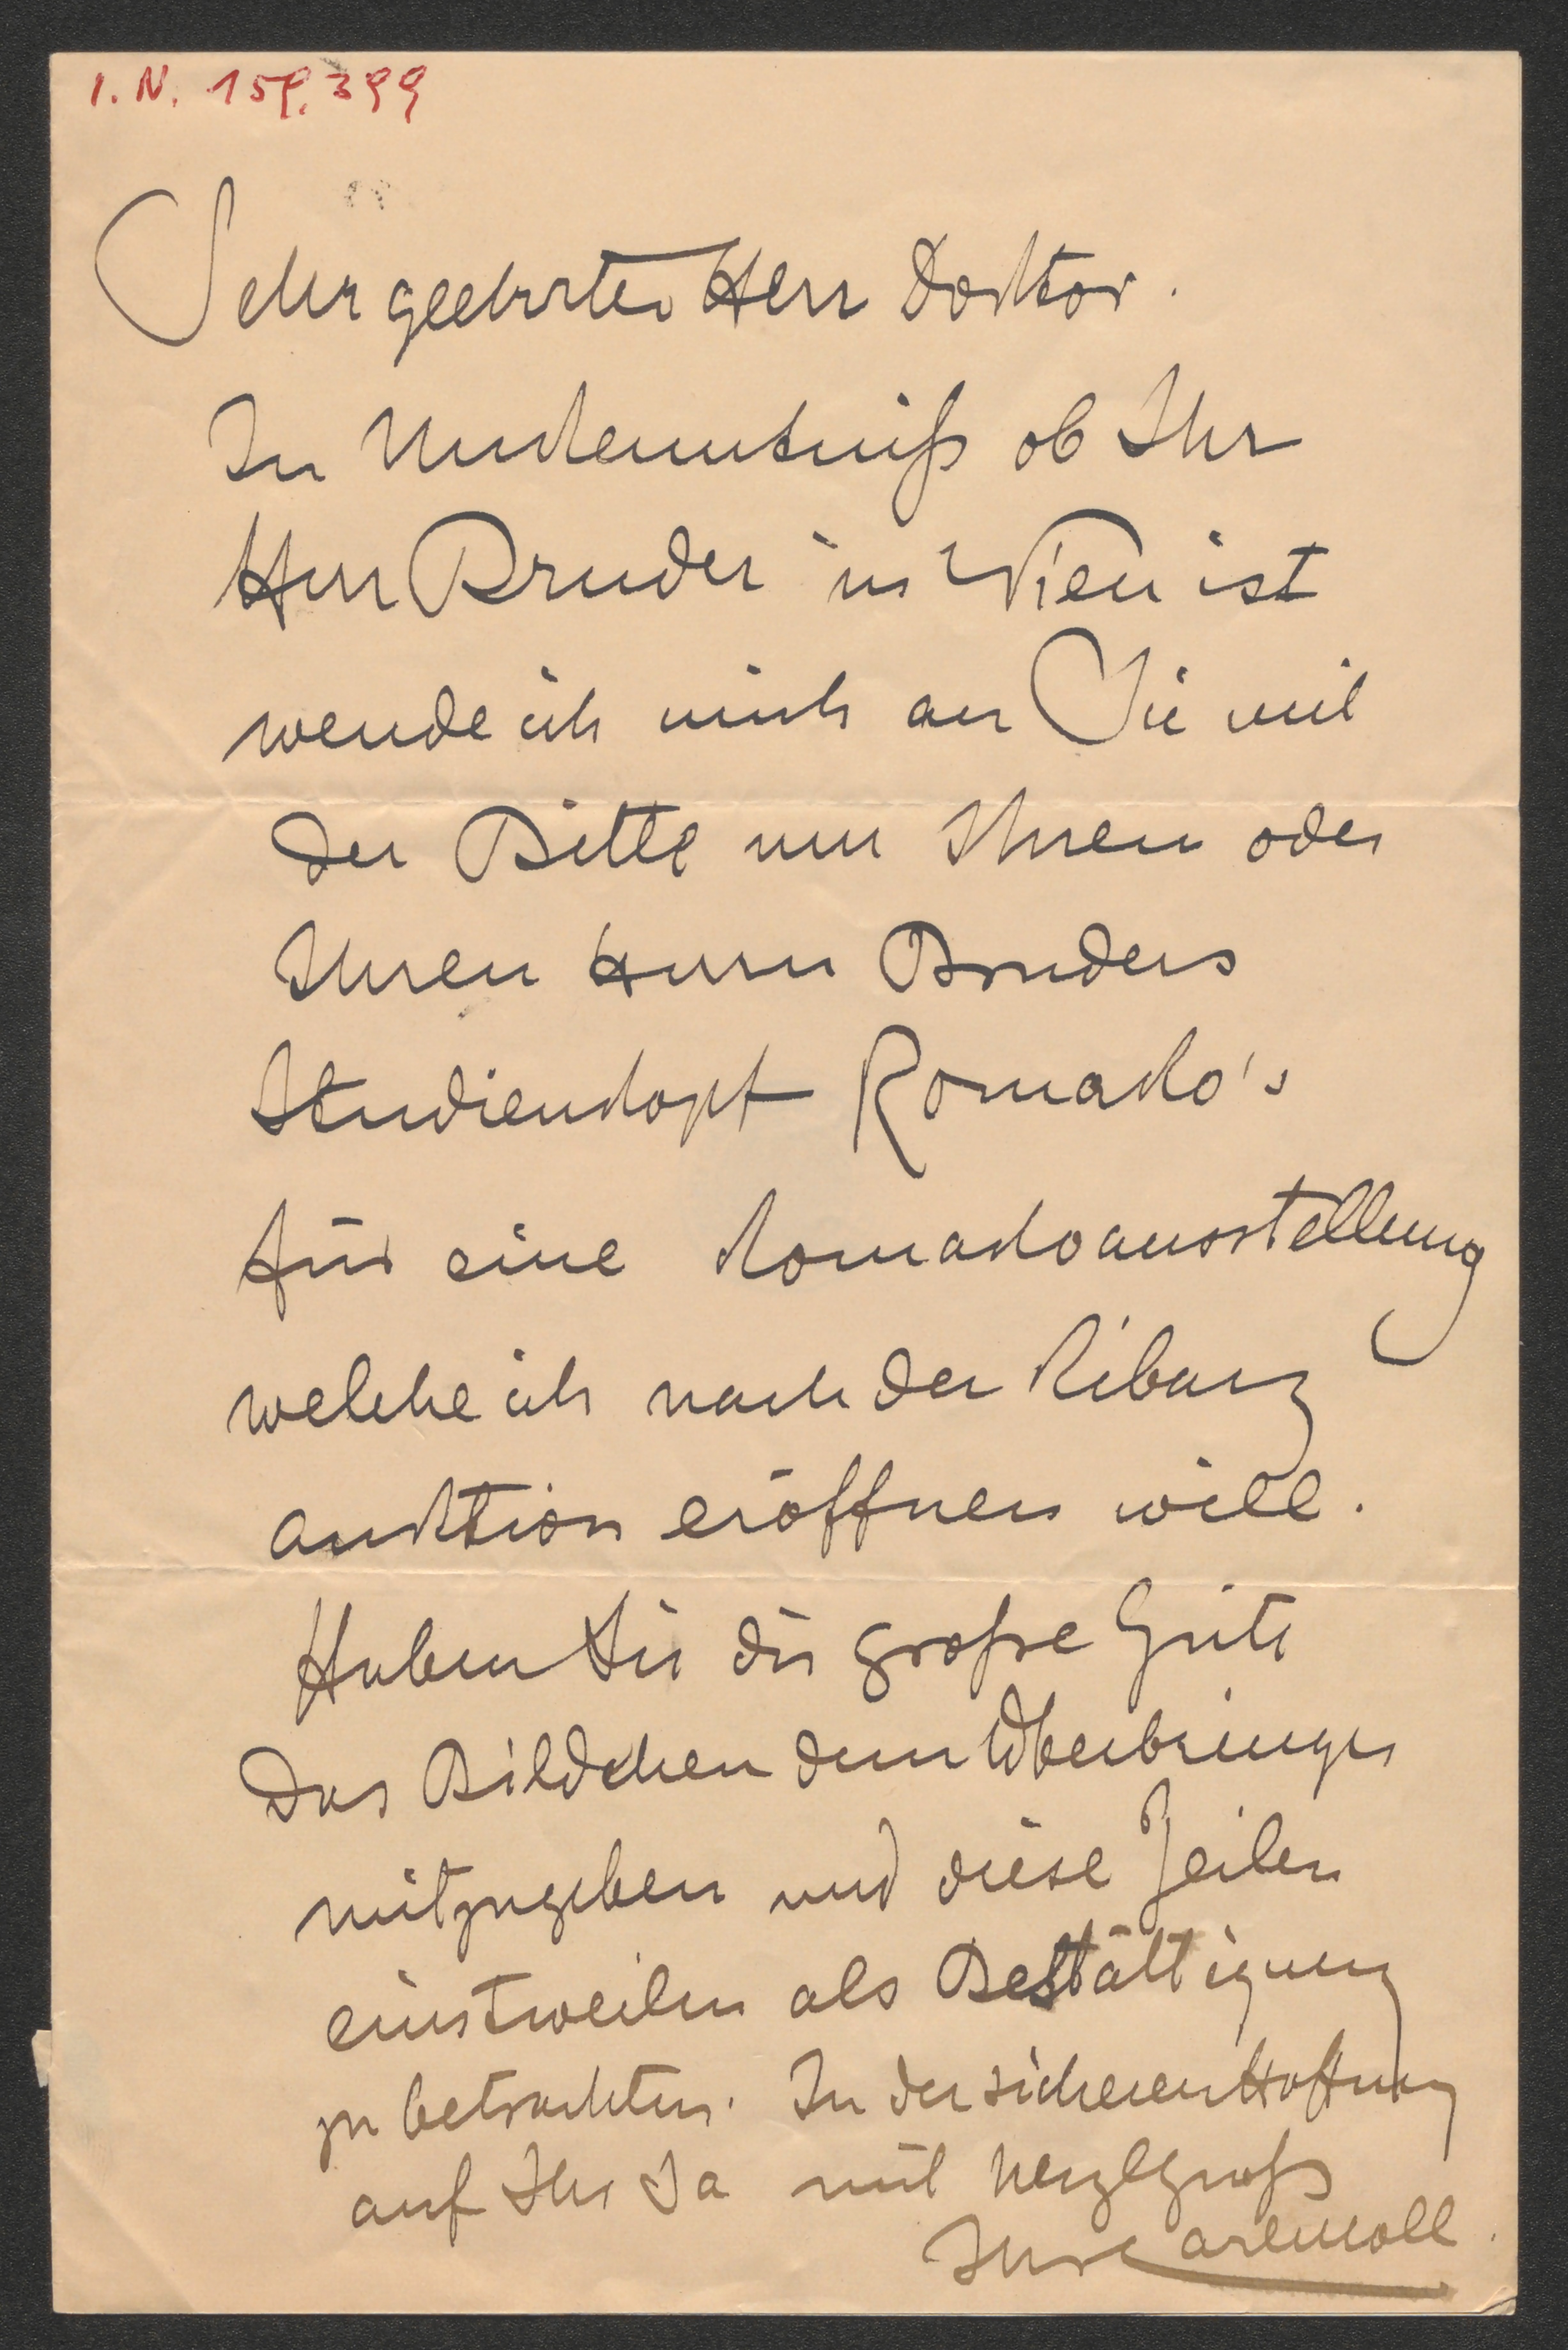 I. N. 159.399
Sehr geehrter Herr Doktor.
In Unkenntniß ob Ihr
Herr Bruder in Wien ist
wende ich mich an Sie mit
der Bitte um Ihren oder
Ihren Herrn Bruders
Studienkopf Romako's
für eine Romakoausstellung
welche ich nach der Ribarz
auktion eröffnen will.
Haben Sie die große Güte
das Bildchen dem Überbringer
mitzugeben und diese Zeilen
einstweilen als Bestättigung
zu betrachten. In der sicheren Hoffnung
auf Ihr Ja mit herzlgruß
Ihr Carl Moll.